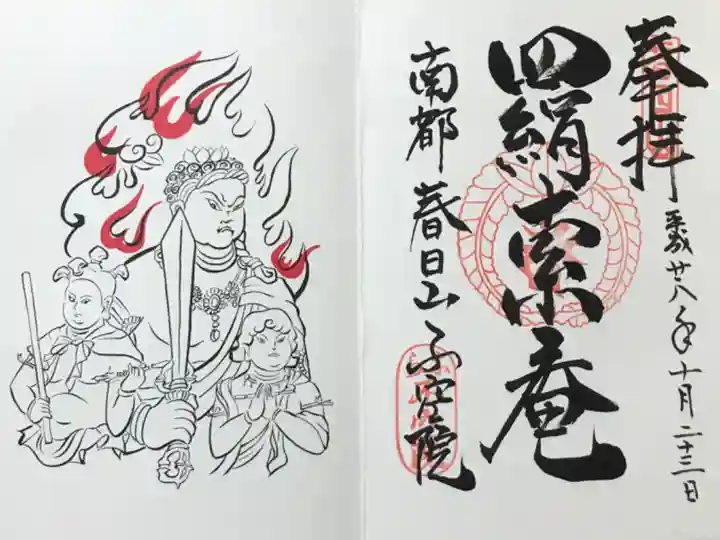 奉拝
平成廿八年十月二十三日
羂索庵
南都 春日山 不空院